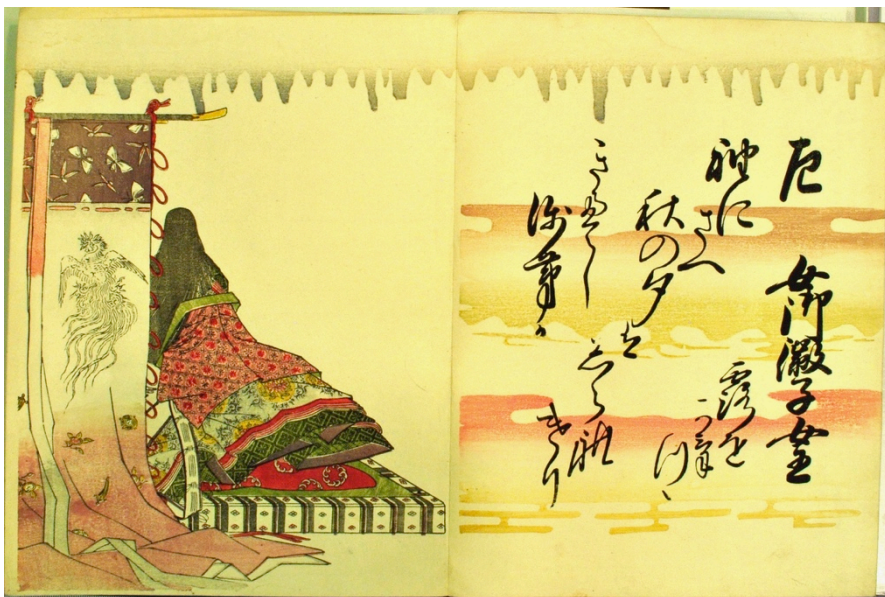 左 女御徽子女王
袖に
さへ
秋の夕は
しられ
けり
きえし
浅茅か
露を
かけつゝ